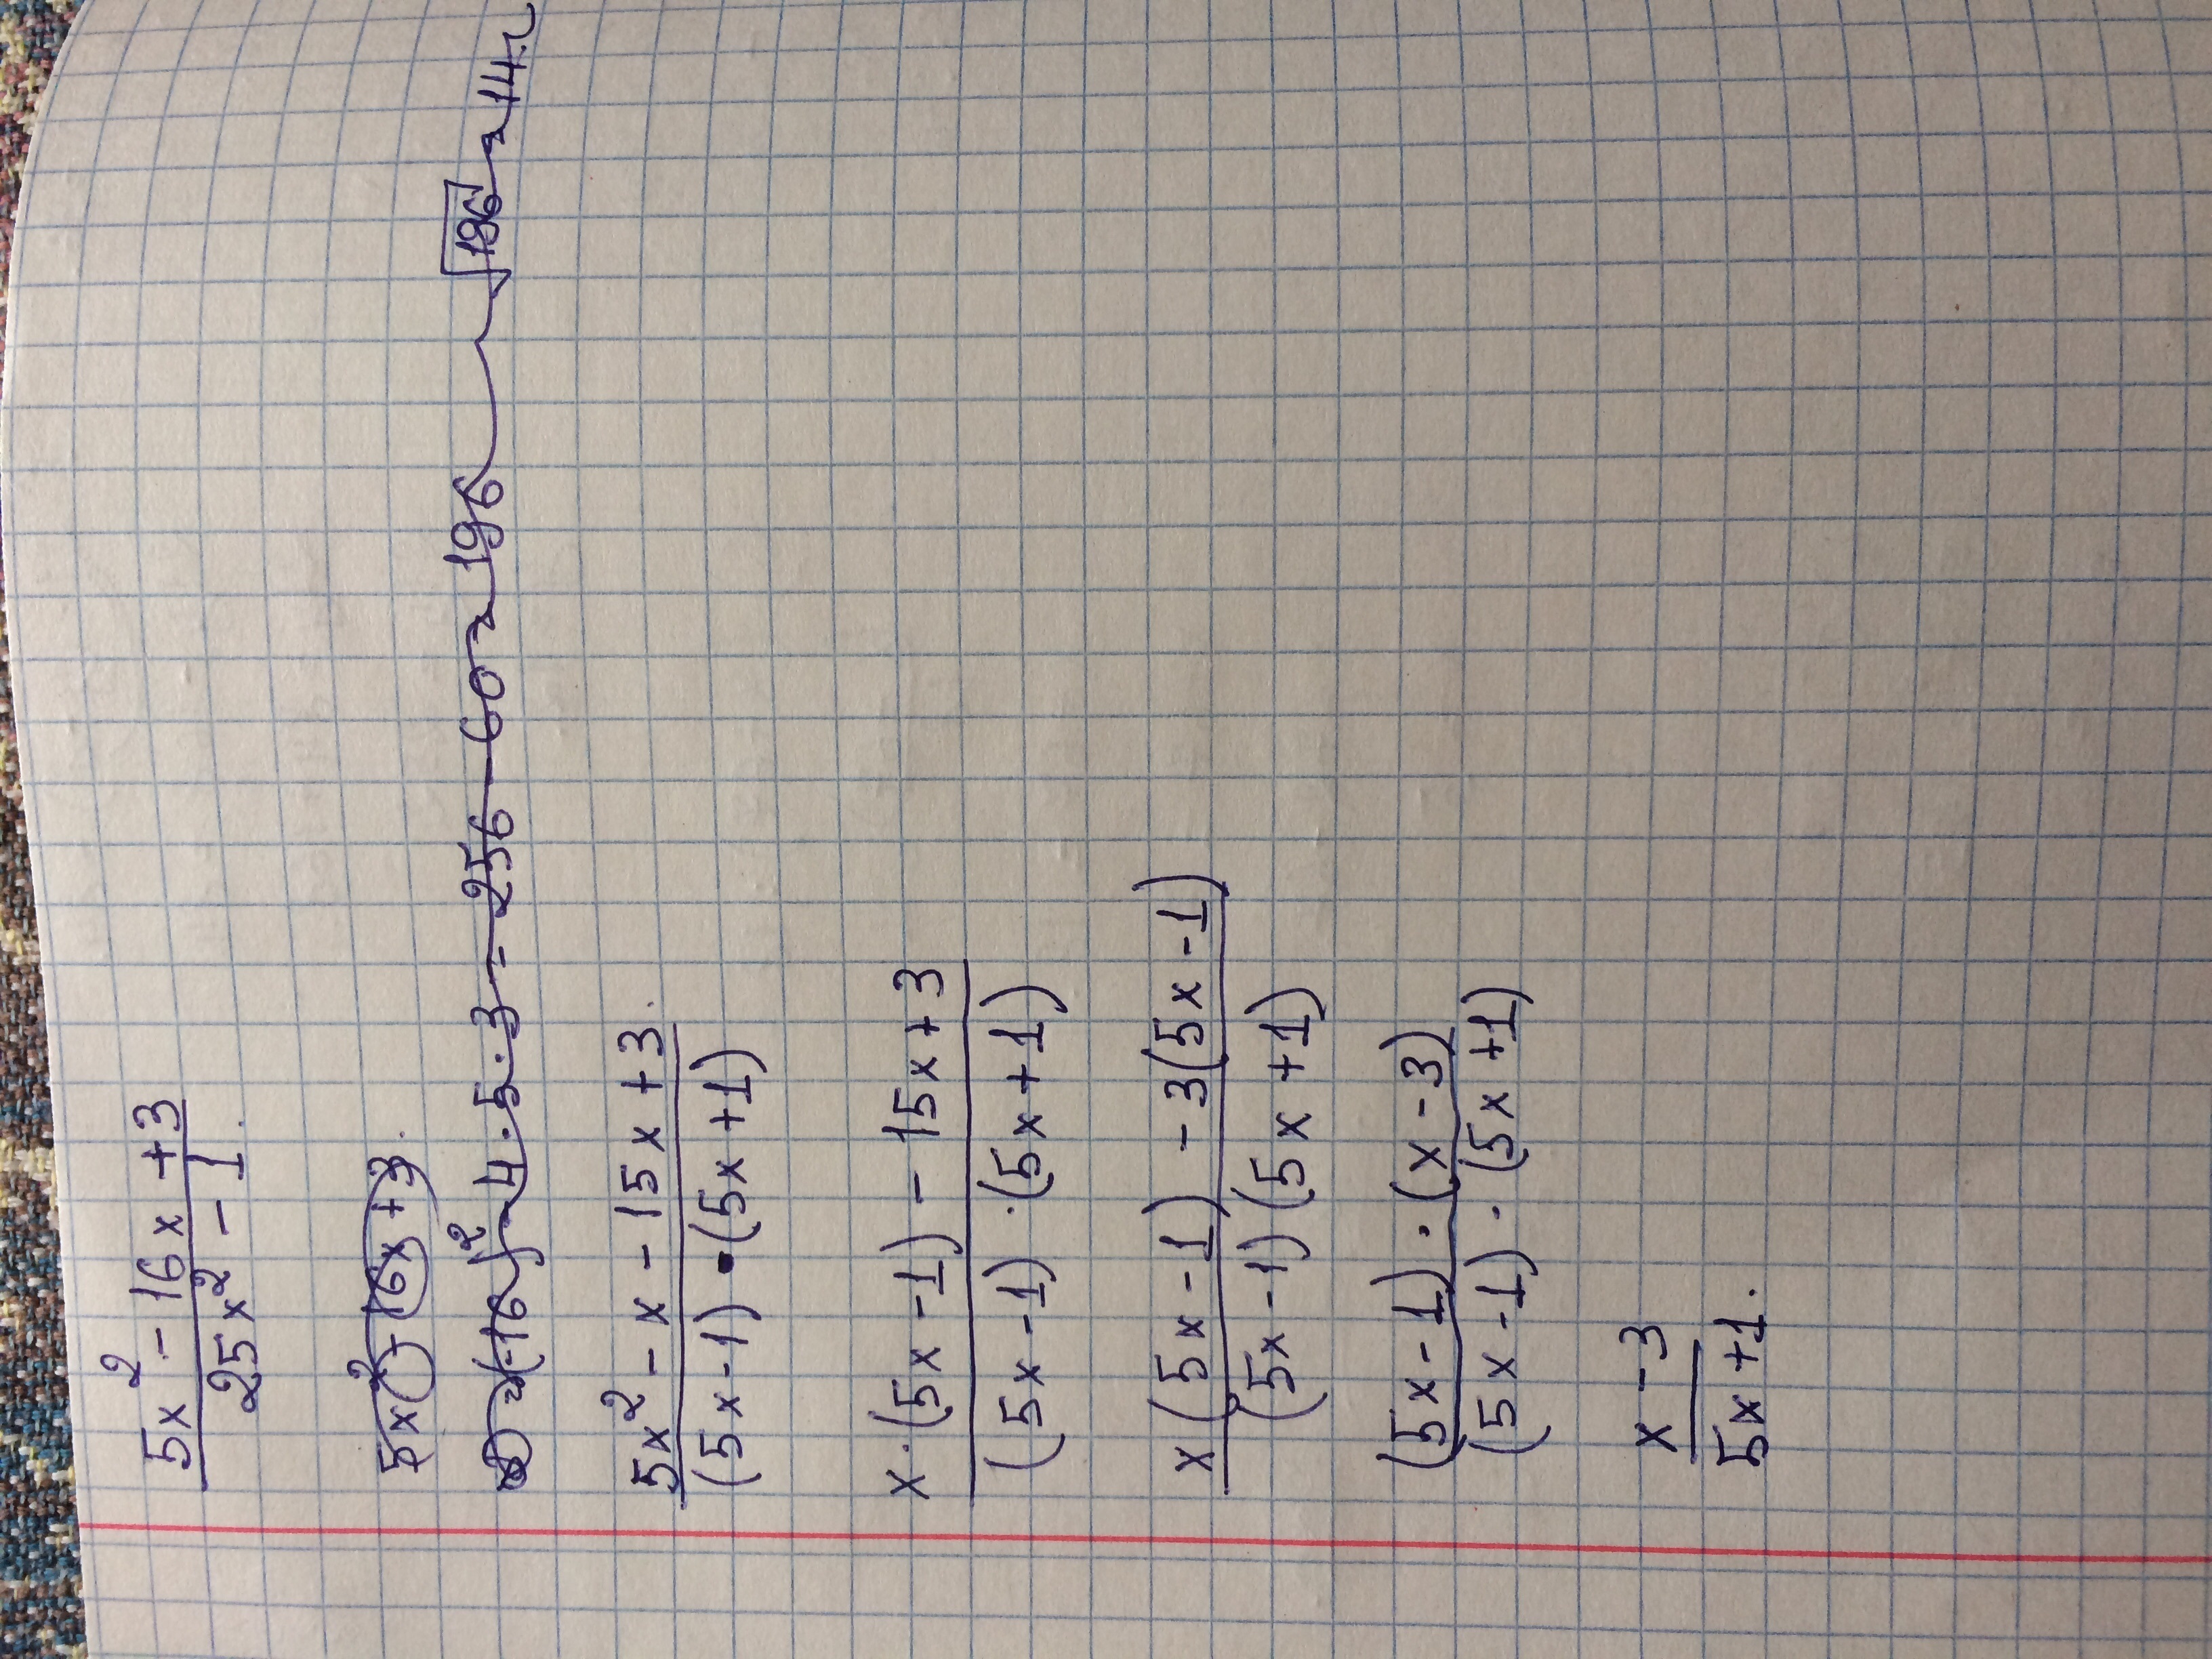 5x² - 16x + 3
25x² - 1.
5x² - 16x + 3.
(-16)² - 4 · 5 · 3 = 256 - 60 = 196 √196 = 14
5x² - x - 15x + 3.
(5x - 1) · (5x + 1)
x · (5x - 1) - 15x + 3
(5x - 1) · (5x + 1)
x(5x - 1) - 3(5x - 1)
(5x - 1)(5x + 1)
(5x - 1) · (x - 3)
(5x - 1) · (5x + 1)
x - 3
5x + 1.